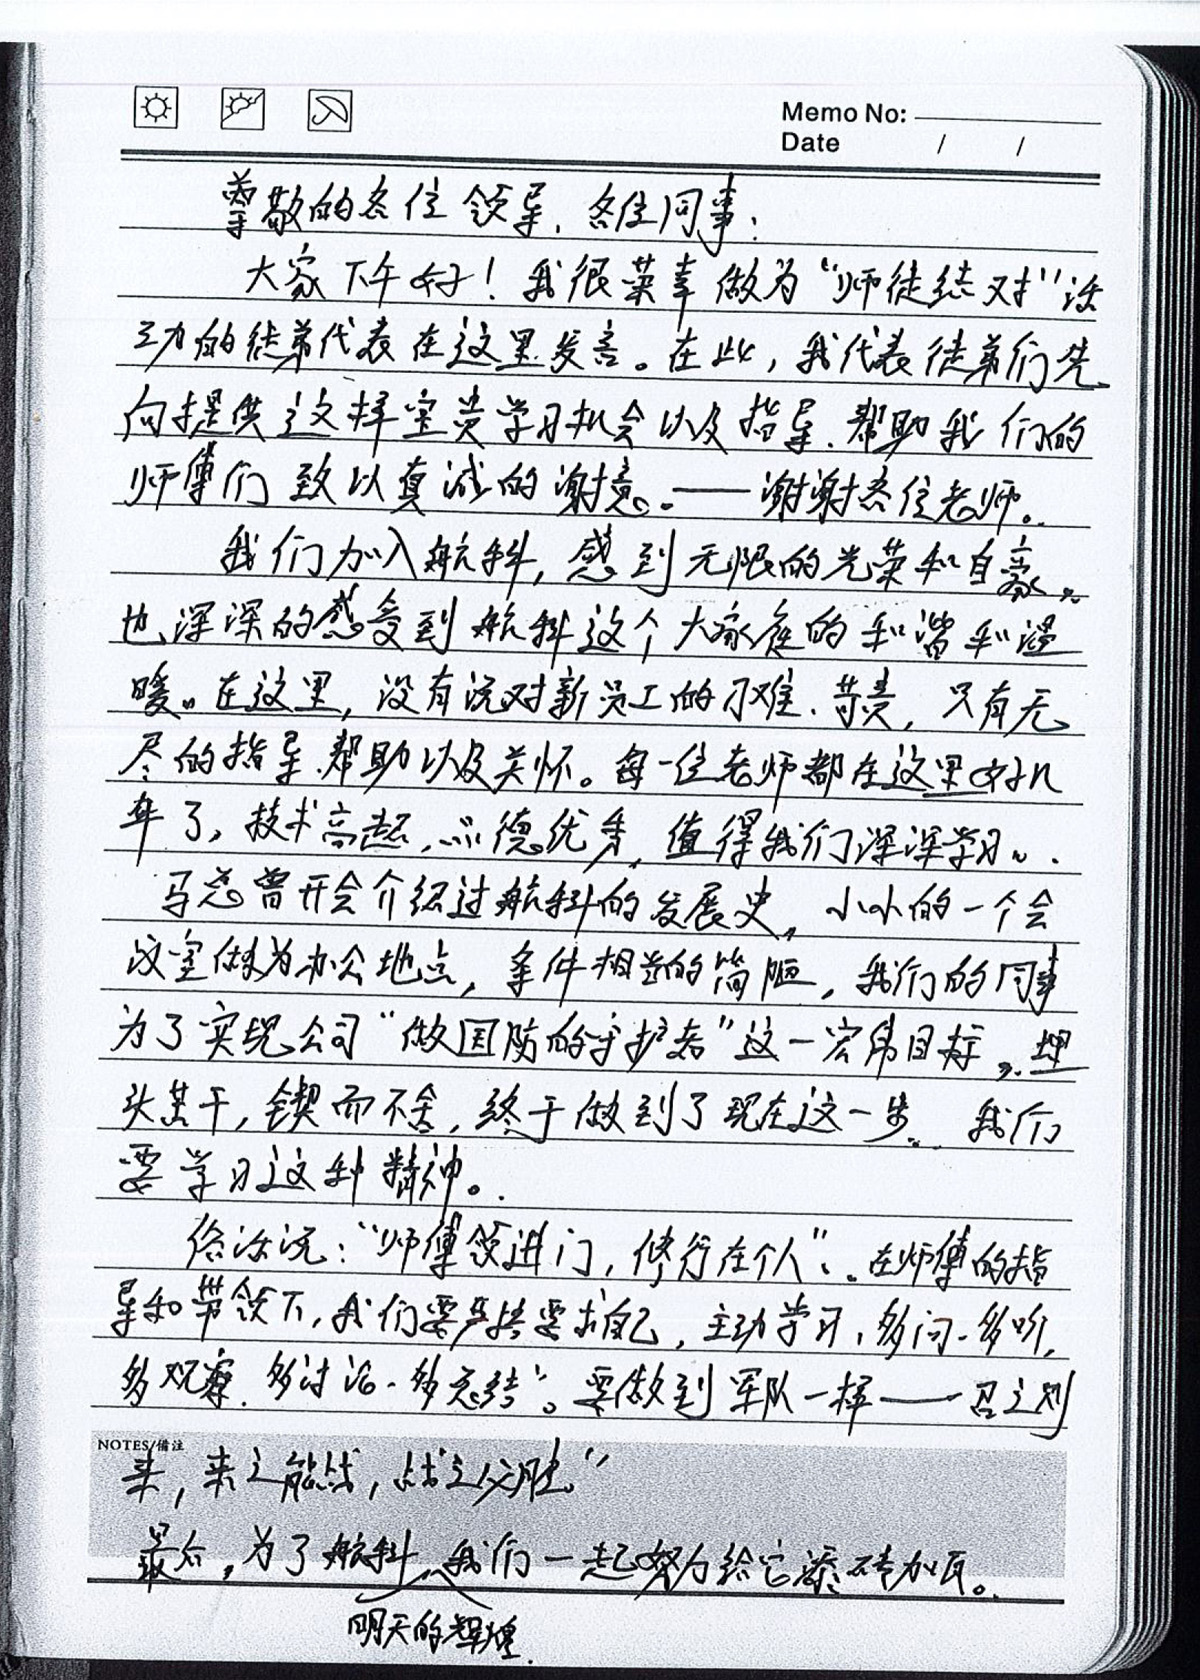 Memo No:
Date / /
尊敬的各位领导、各位同事:
大家下午好!我很荣幸做为“师徒结对”活
动的徒弟代表在这里发言。在此,我代表徒弟们先
向提供这样宝贵学习机会以及指导、帮助我们的
师傅们致以真诚的谢意。——谢谢各位老师。
我们加入航科,感到无限的光荣和自豪。
也深深的感受到航科这个大家庭的和谐和温
暖。在这里,没有说对新员工的刁难、苛责,只有无
尽的指导、帮助以及关怀。每一位老师都在这里好几
年了,技术高超,品德优秀,值得我们深深学习。
马总曾开会介绍过航科的发展史,小小的一个会
议室做为办公地点,条件相当的简陋,我们的同事
为了实现公司“做国防的守护者”这一宏伟目标,埋
头苦干,锲而不舍,终于做到了现在这一步。我们
要学习这种精神。
俗话说:“师傅领进门,修行在个人”。在师傅的指
导和带领下,我们要严格要求自己,主动学习,多问、多听,
多观察、多讨论、多总结。要做到军队一样——召之则
NOTES/備注
来,来之能战,战之必胜”
最后,为了航科明天的辉煌我们一起努力给它添砖加瓦。